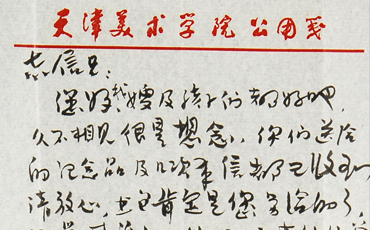 天津美术学院公用笺
志信兄:
您好!我嫂及孩子们都好吧,
久不相见很是想念,你们送给
的纪念品及几次来信都已收到
请放心,也肯定是您寄给的了,